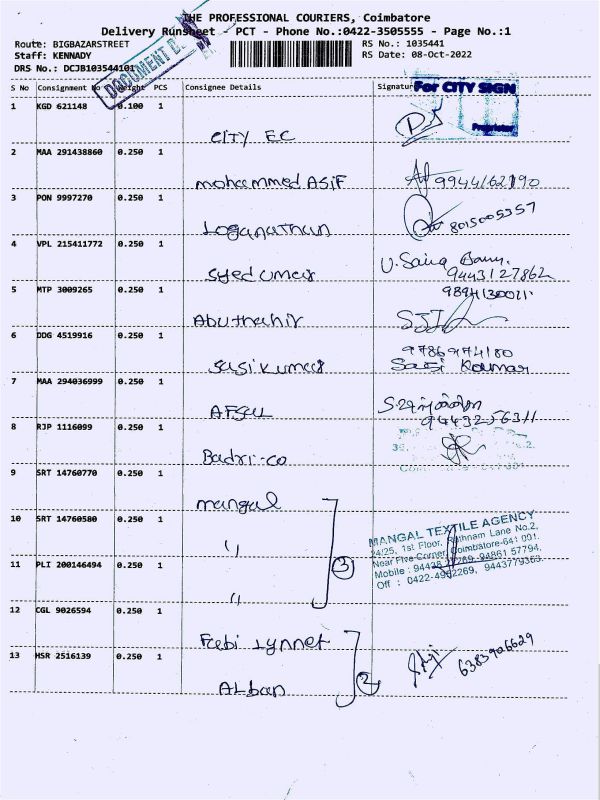 THE PROFESSIONAL COURIERS, Coimbatore
Delivery Runsheet - PCT - Phone No.:0422-3505555 - Page No.:1
Route: BIGBAZARSTREET
Staff: KENNADY
DRS No.: DCJB103544101
RS No.: 1035441
RS Date: 08-Oct-2022
DOCUMENT
S No Consignment No Weight PCS Consignee Details Signature
For CITY SIGN
Proprietor
1 KGD 621148 0.100 1
CITY EC
2 MAA 291438860 0.250 1
mohammed ASIF 9944162190
3 PON 9997270 0.250 1
Loganathan 8015005357
4 VPL 215411772 0.250 1
Syed umar
9443127862
5 MTP 3009265 0.250 1 9894130021
Abuthahir
6 DDG 4519916 0.250 1
9786974180
Sasikumar Sasi Koumar
7 MAA 294036999 0.250 1
AFSAL 9443256311
8 RJP 1116099 0.250 1
Badri-co
9 SRT 14760770 0.250 1
mangal
10 SRT 14760580 0.250 1
"
11 PLI 200146494 0.250 1
"
3
MANGAL TEXTILE AGENCY
24/25, 1st Floor, Rathnam Lane No.2,
Near Five Corner, Coimbatore-641 001.
Mobile : 94438 94861 57794,
Off : 0422-4962269, 9443779363
12 CGL 9026594 0.250 1
Febi Lynnet
13 HSR 2516139 0.250 1
Alban
2
6383926629